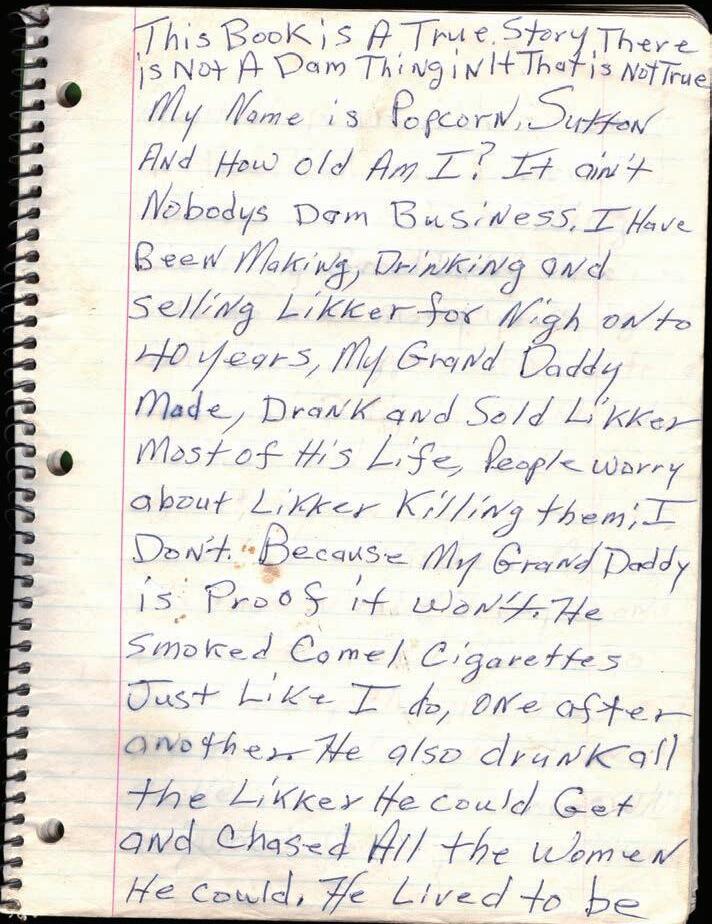 This Book is A True. Story, There
is Not A Dam Thing in It That is Not True
My Name is Popcorn, Sutton
And How old Am I? It ain't
Nobodys Dam Business. I Have
Been Making, Drinking and
Selling Likker for Nigh onto
40 years, My Grand Daddy
Made, Drank and Sold Likker
Most of His Life, People worry
about Likker Killing them; I
Don't. Because My Grand Daddy
is Proof it won't. He
Smoked Camel Cigarettes
Just Like I do, one after
another. He also drunk all
the Likker He could Get
and Chased All the Women
He could. He Lived to be